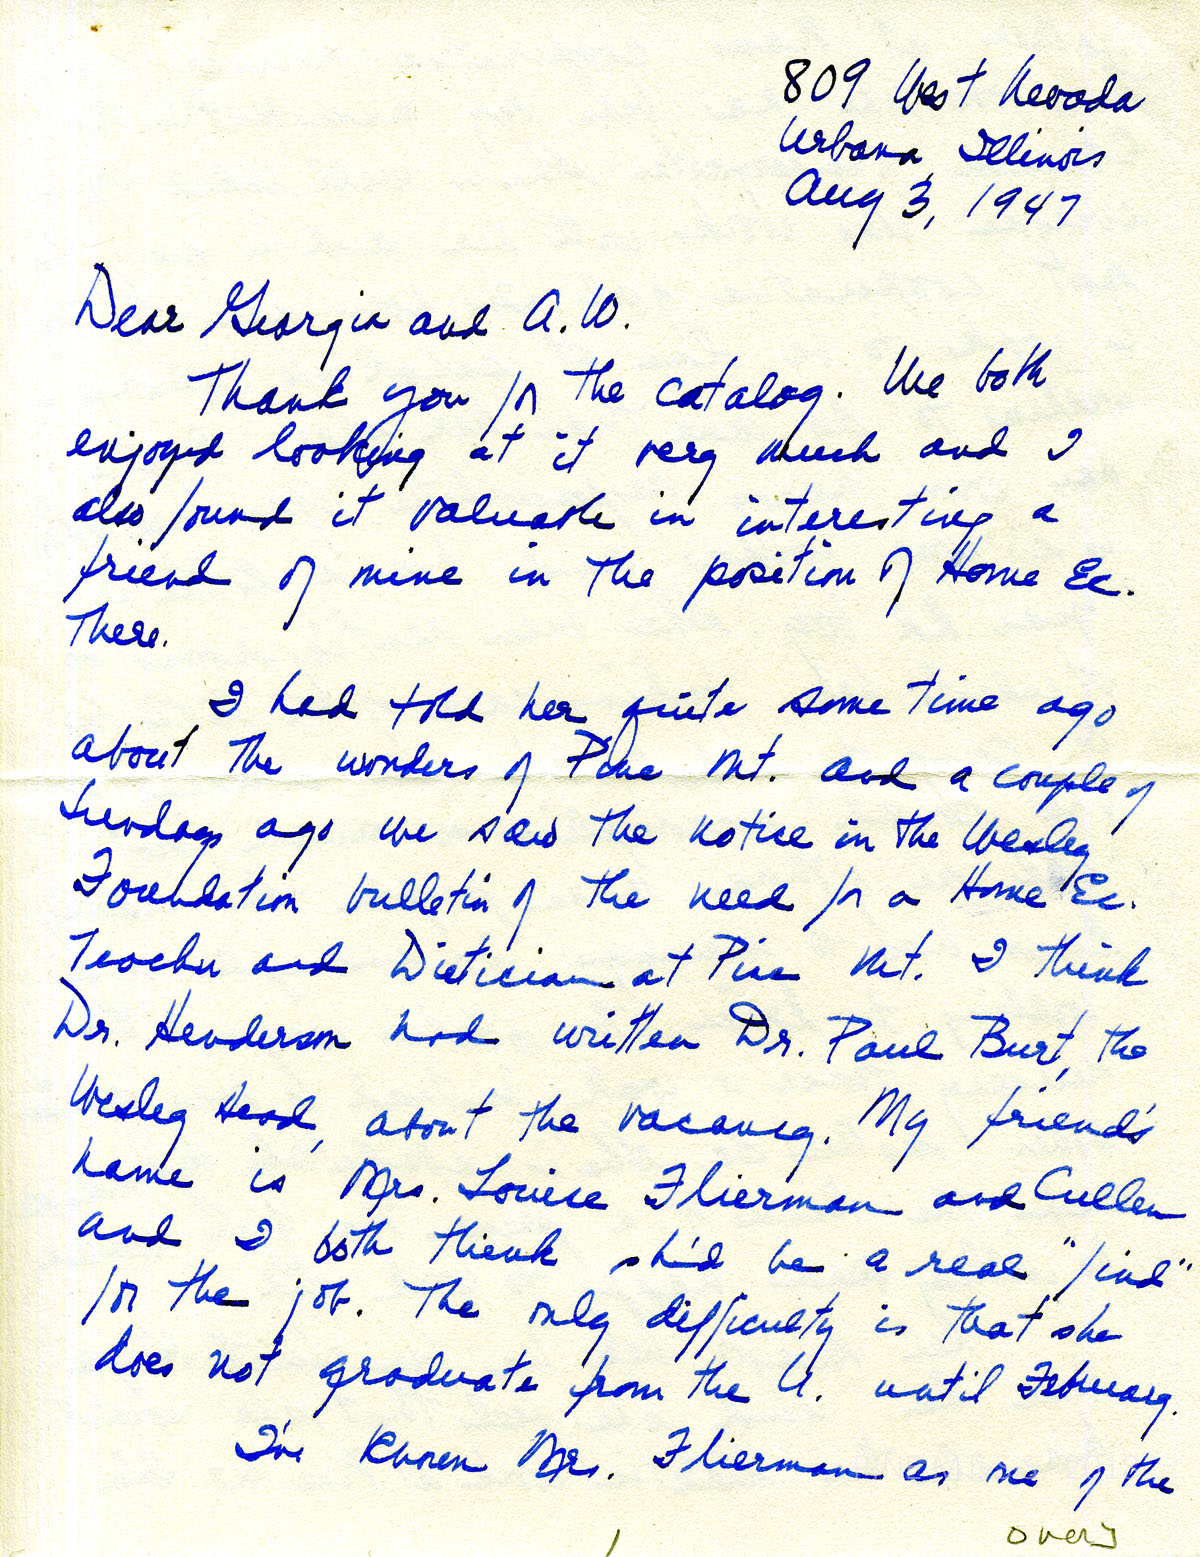 809 West Nevada
Urbana, Illinois
Aug 3, 1947
Dear Georgia and A.W.
Thank you for the catalog. We both
enjoyed looking at it very much and I
also found it valuable in interesting a
friend of mine in the position of Home Ec.
there.
I had told her quite some time ago
about the wonders of Pine Mt. and a couple of
Sundays ago we saw the notice in the Wesley
Foundation bulletin of the need for a Home Ec.
Teacher and Dietician at Pine Mt. I think
Dr. Henderson had written Dr. Paul Burt, the
Wesley Head, about the vacancy. My friend's
name is Mrs. Louise Flierman and Cullen
and I both think she'd be a real "find"
for the job. The only difficulty is that she
does not graduate from the U. until February.
I've known Mrs. Flierman as one of the
1
over